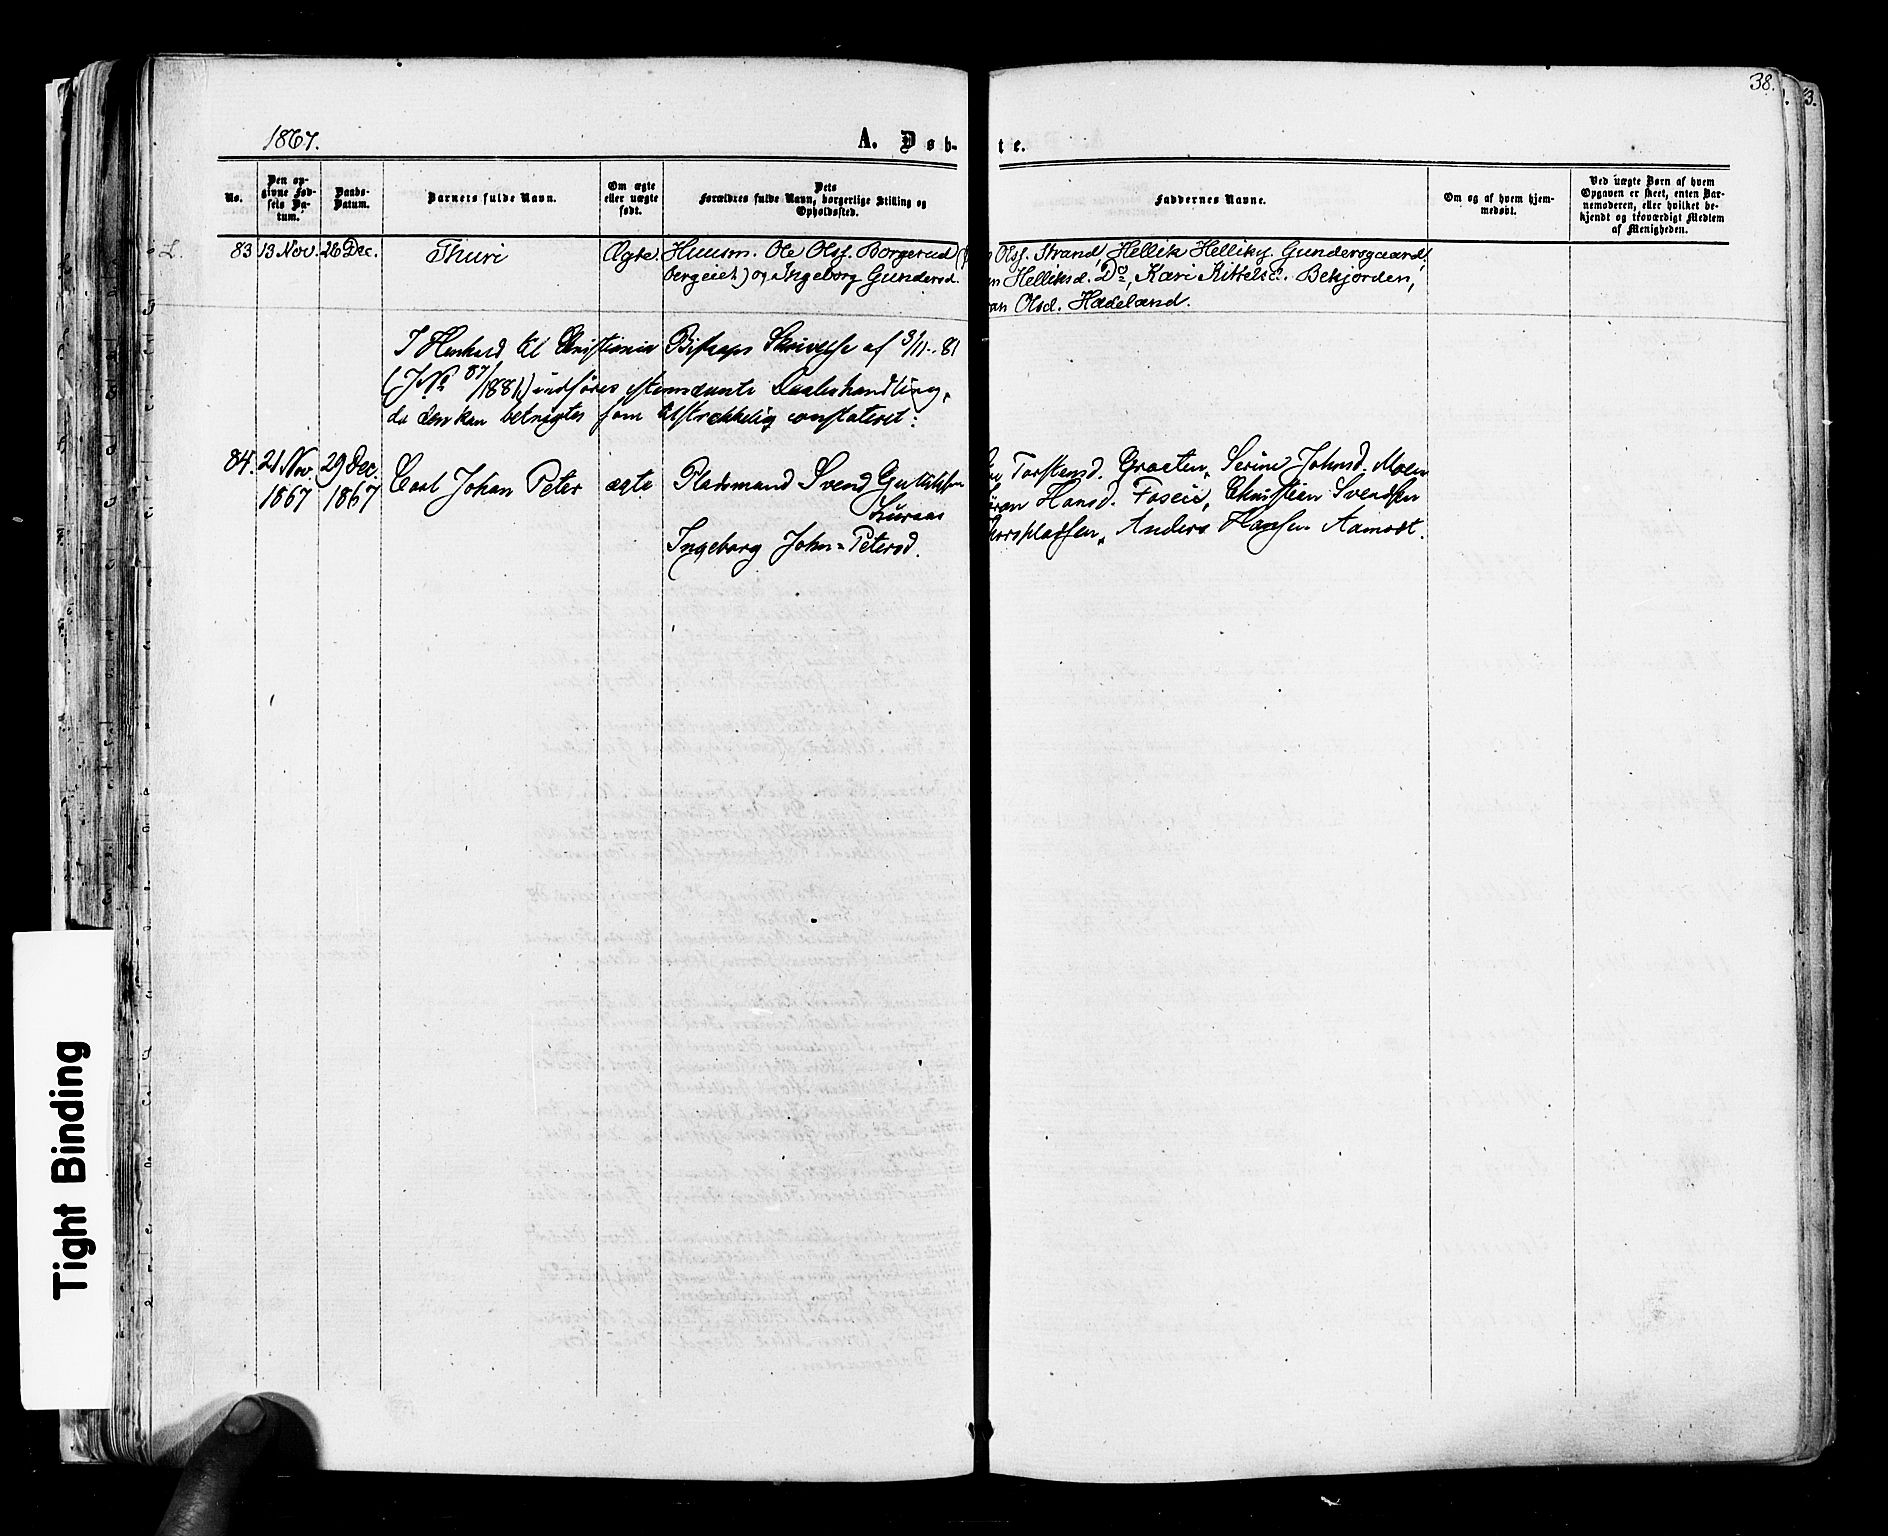 38.
3.
1867.
A. Døb-
te.
No.
Den op-
givne Fød-
sels Da-
tum.
Daabs-
Datum.
Barnets fulde Navn.
Om ægte
eller uægte
født.
Dets
Forældres fulde Navn, borgerlige Stilling og
Opholdssted.
Faddernes Navne.
Om og af hvem hjem-
medøbt.
Ved uægte Børn af hvem
Opgaven er skeet, enten Bar-
nemoderen, eller hvilket be-
kjendt og troværdigt Medlem
af Menigheden.
L. 83 13 Nov. 26 Dec. Thuri Ægte. Huusm. Ole Olsf. Borgerud
bergeiet) og Ingeborg Gundersd.
Olsf. Strand, Hellik Helliksf. Gundersgaard,
Helliksd. Do, Kari Kittelsd. Bekjorden,
Olsd. Hadeland.
I Henhold til Christiania Bispaps Skrivelse af 3/11-81
(J No 87/1881) indføres efterstaaende Daabshandling,
da den kan betragtes som tilstrækkelig constateret:
84. 21 Nov. 29 Dec. Carl Johan Peter ægte Pladsmand Svend Gulliksen
1867 1867
Ingeborg John-Petersd.
Torstensd. Graaten, Serine Johnsd. Moen
Hansd. Foseie, Christian Svendsen
Anders Hansen Aamodt.
Tight Binding